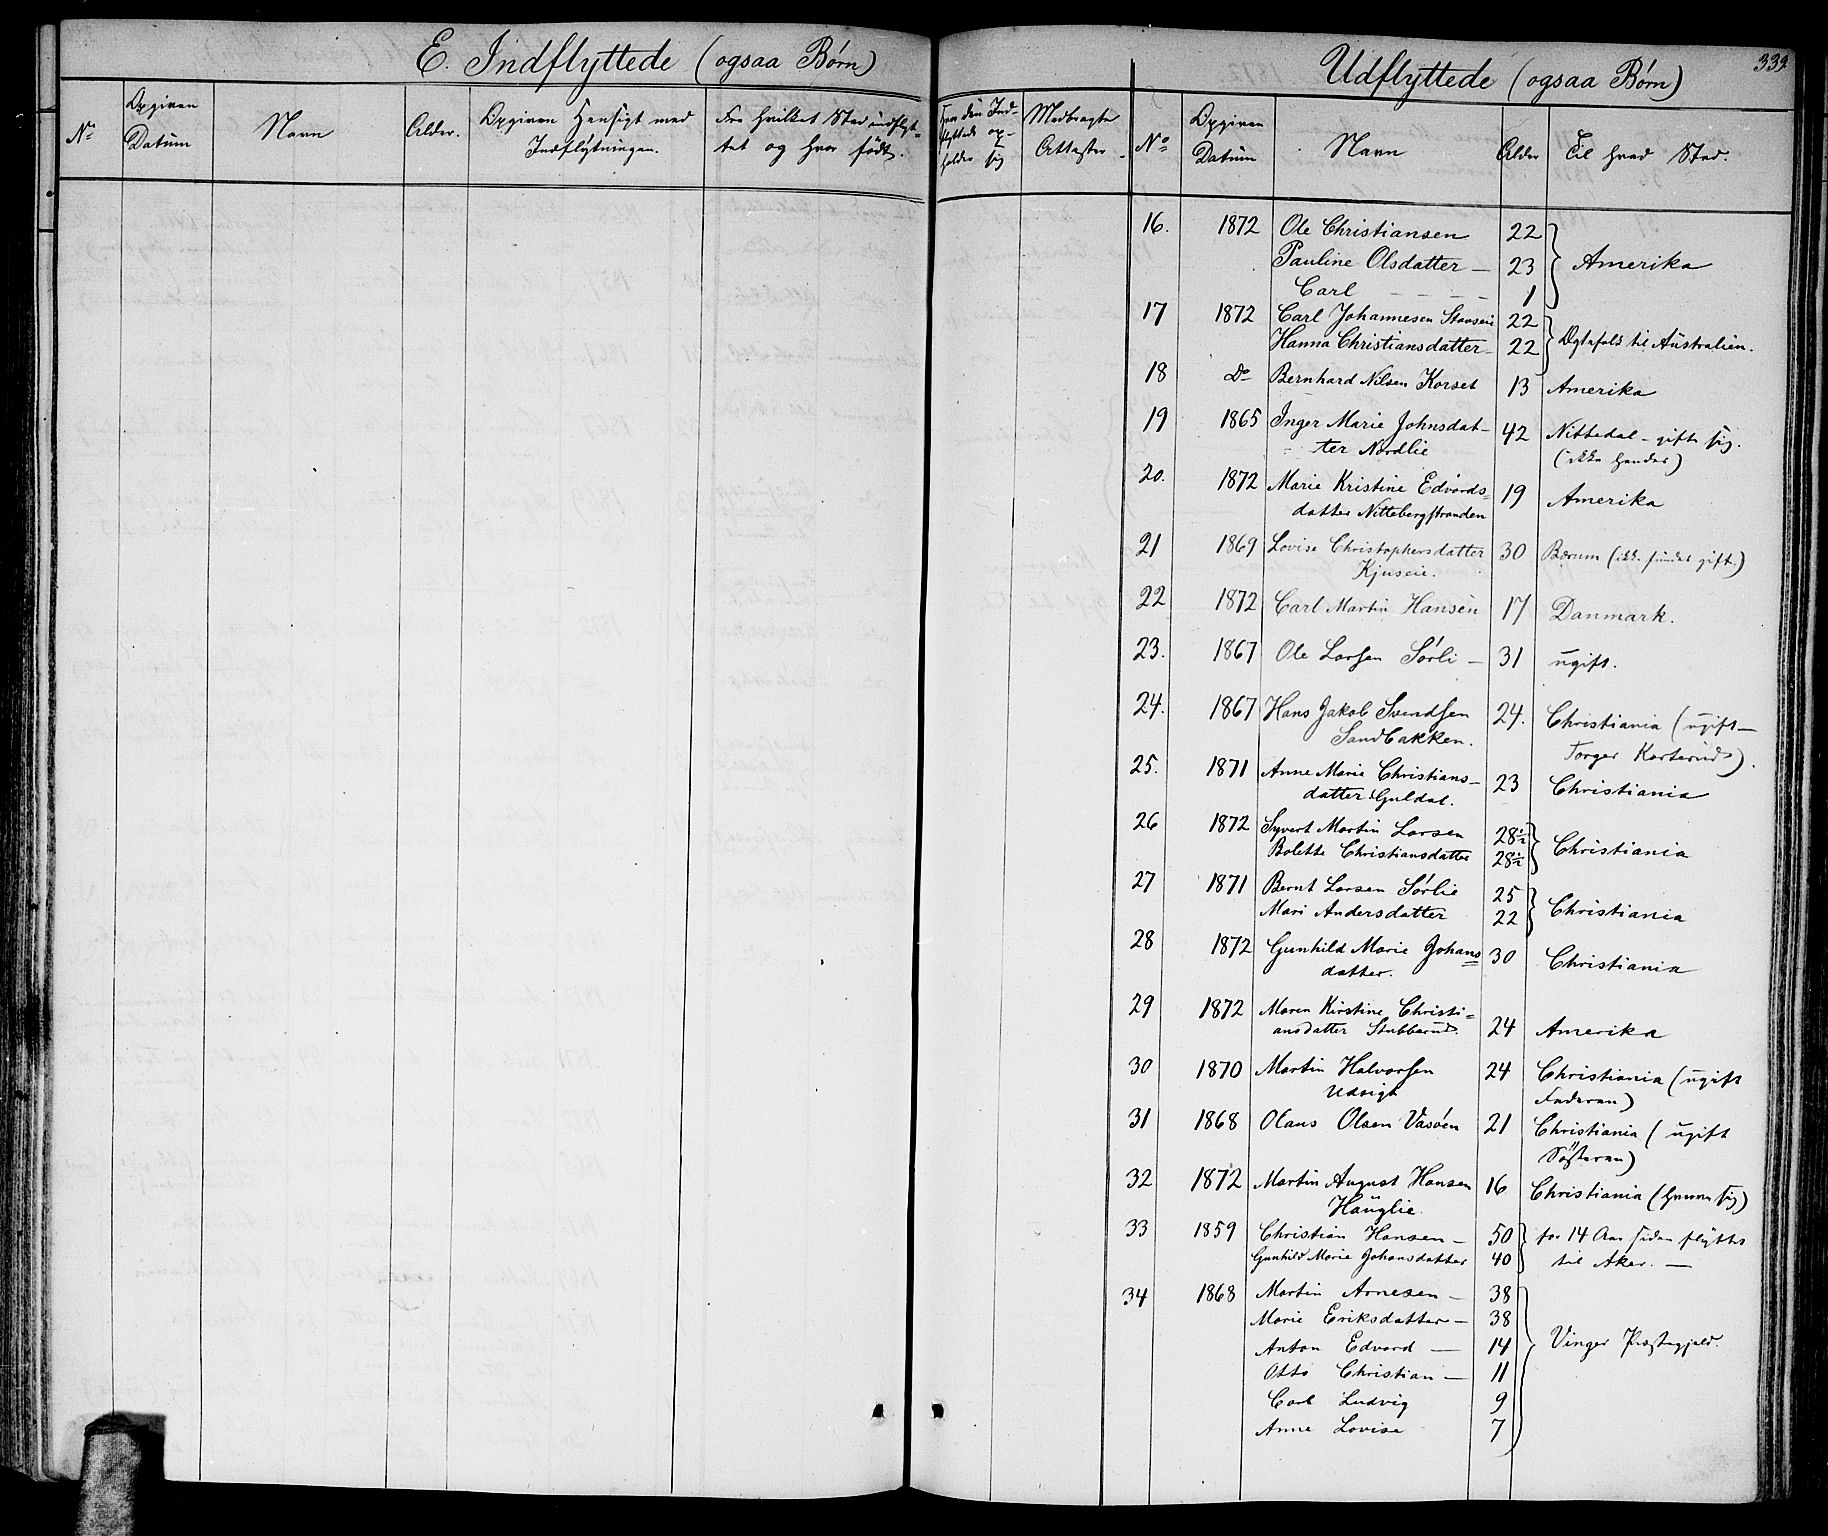 E. Indflyttede (ogsaa Børn)
Udflyttede (ogsaa Børn)
339.
No
Opgiven Datum
Navn
Alder.
Opgiven Hensigt med Indflytningen.
Fra hvilket Sted indflyttet og hvor født.
Hvor den Indflyttede opholder sig
Medbragte Attester.
No
Opgiven Datum
Navn
Alder
Til hvad Sted.
16. 1872 Ole Christiansen 22
Pauline Olsdatter — 23 Amerika
Carl — — — 1
17 1872 Carl Johannesen 22
Hanna Christiansdatter 22 Ægtefolk til Australien.
18 Do Bernhard Nilsen Korset 13 Amerika
19 1865 Inger Marie Johnsdat- 42 Nittedal - gifte sig.
ter Nordlie (ikke hendes)
20. 1872 Marie Kristine Edvards= 19 Amerika
datter Nittebergstranden
21 1869 Lovise Christophersdatter 30 Bærum (ikke fundet gift.)
Kjuseie.
22 1872 Carl Martin Hansen 17 Danmark.
23. 1867 Ole Larsen Sørli — 31 ugift.
24. 1867 Hans Jakob Svendsen 24. Christiania (ugift—
Sandbakken. Torger Karterud).
25. 1871 Anne Marie Christians- 23 Christiania
datter Guldal.
26 1872 Syvert Martin Larsen 28½
Bolette Christiansdatter 28½ Christiania
27 1871 Bernt Larsen Sørlie 25
Mari Andersdatter 22 Christiania
28 1872 Gunhild Marie Johans= 30 Christiania
datter.
29 1872 Maren Kirstine Christi=
ansdatter Stubberud. 24 Amerika
30 1870 Martin Halvorsen 24 Christiania (ugift
Udsigt Faderen)
31 1868 Olaus Olsen Vasøen 21 Christiania (ugift
Søsteren)
32 1872 Martin August Hansen 16 Christiania (hans sig)
Hauglie.
33 1859 Christian Hansen — 50 for 14 Aar siden flyttet
Gunhild Marie Johansdatter 40 til Aker. —
34 1868 Martin Arnesen — 38
Marie Eriksdatter — 38
Anton Edvard — 14 Vinger Præstegjeld.
Otto Christian — 11
Carl Ludvig 9
Anne Lovise 7